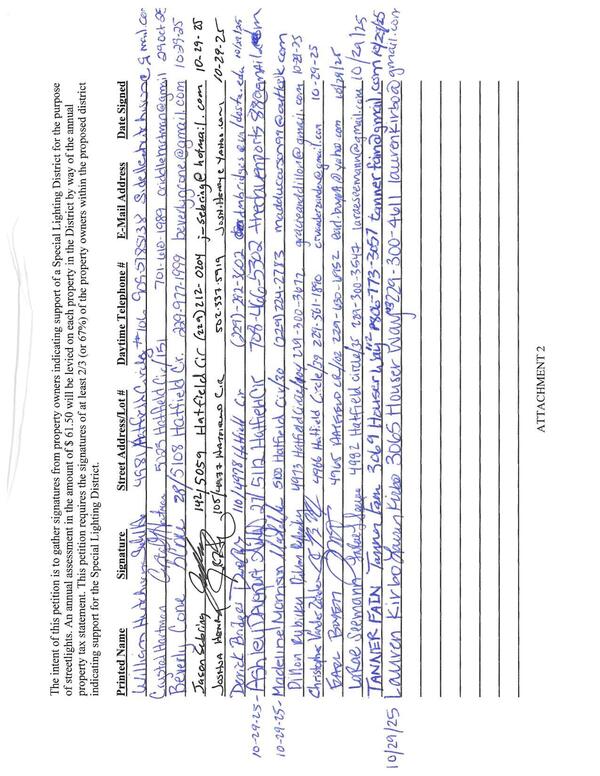 The intent of this petition is to gather signatures from property owners indicating support of a Special Lighting District for the purpose
of streetlights. An annual assessment in the amount of $ 61.50 will be levied on each property in the District by way of the annual
property tax statement. This petition requires the signatures of at least 2/3 (or 67%) of the property owners within the proposed district
indicating support for the Special Lighting District.
Printed Name Signature Street Address/Lot # Daytime Telephone # E-Mail Address Date Signed
William Hutchinson 4981 Hatfield Circle #106
Crystal Hartman 5125 Hatfield Cir/151 701-610-1989 29 Oct 25
Beverly Cone 28/5108 Hatfield Cr. 229-977-1999 10-29-25
Jason Sebring 142/5059 Hatfield Cir (229) 212-0204 j-sebring@hotmail.com 10-29-25
Joshua Henry 105/4977 Hatfield Cir 502-537-5919 Josh.Henrye Yahoo.com 10-29-25
Derrick Bridges 110/4998 Hatfield Cir (229)-292-3602 10/29/25
10-29-25- Ashley Davenport 27/5112 Hatfield Cir 708-466-5302
10-29-25- Madeline Morrison 5100 Hatfield Cir/30 (229) 724-2773
Dillon Rubiley 4973 Hatfield Circle/104 229-300-3672 10-29-25
Christopher 4966 Hatfield Circle/39 229-561-1890 10-29-25
Earl Bowen 4965 Hatfield Cir/102 229-630-6952 10/29/25
LaRae Seemann 4982 Hatfield Circle/35 229-300-3547 laraeseemann@gmail.com 10/29/25
TANNER FAIN Tanner Fain 3069 Houser Way 806-773-3057 tannerfain@gmail.com 10/29/25
10/29/25 Lauren Kirbo Lauren Kirbo 3065 Houser Way 229-300-4611 laurenkirbo@gmail.com
ATTACHMENT 2